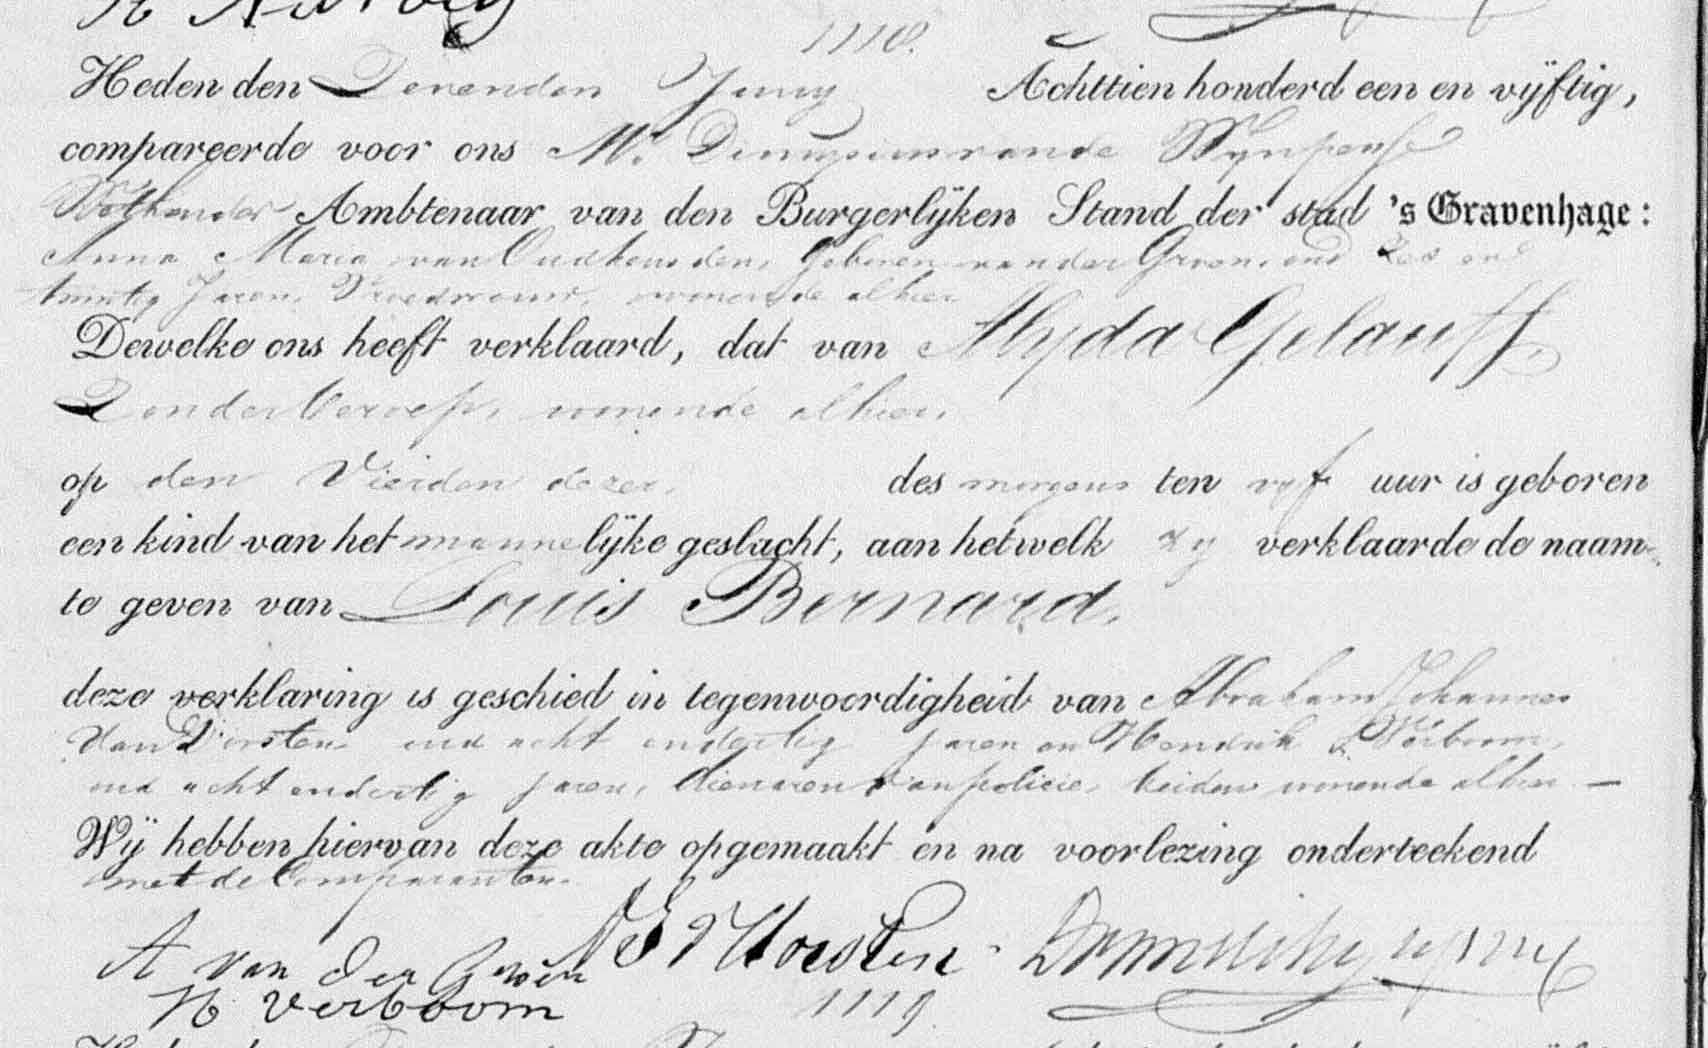 1118.
Heden den Zevenden Juny Achttien honderd een en vijftig,
compareerde voor ons Mr.
Wethouder Ambtenaar van den Burgerlijken Stand der stad 's Gravenhage:
Anna Maria van Oudheusden, geboren van der Groen, oud zes en
twintig Jaren, Vroedvrouw, wonende alhier
Dewelke ons heeft verklaard, dat van Alyda Gelauff,
Zonder beroep, wonende alhier,
op den Vierden dezer, des morgens ten vyf uur is geboren
een kind van het mannelijke geslacht, aan hetwelk zy verklaarde de naam
te geven van Louis Bernard,
deze verklaring is geschied in tegenwoordigheid van Abraham Johannes
oud acht en dertig jaren en Hendrik Verboom,
oud acht en dertig jaren, dienaren van policie, beiden wonende alhier —
Wij hebben hiervan deze akte opgemaakt en na voorlezing onderteekend
met de Comparanten.
A van der Groen
H Verboom 1119.